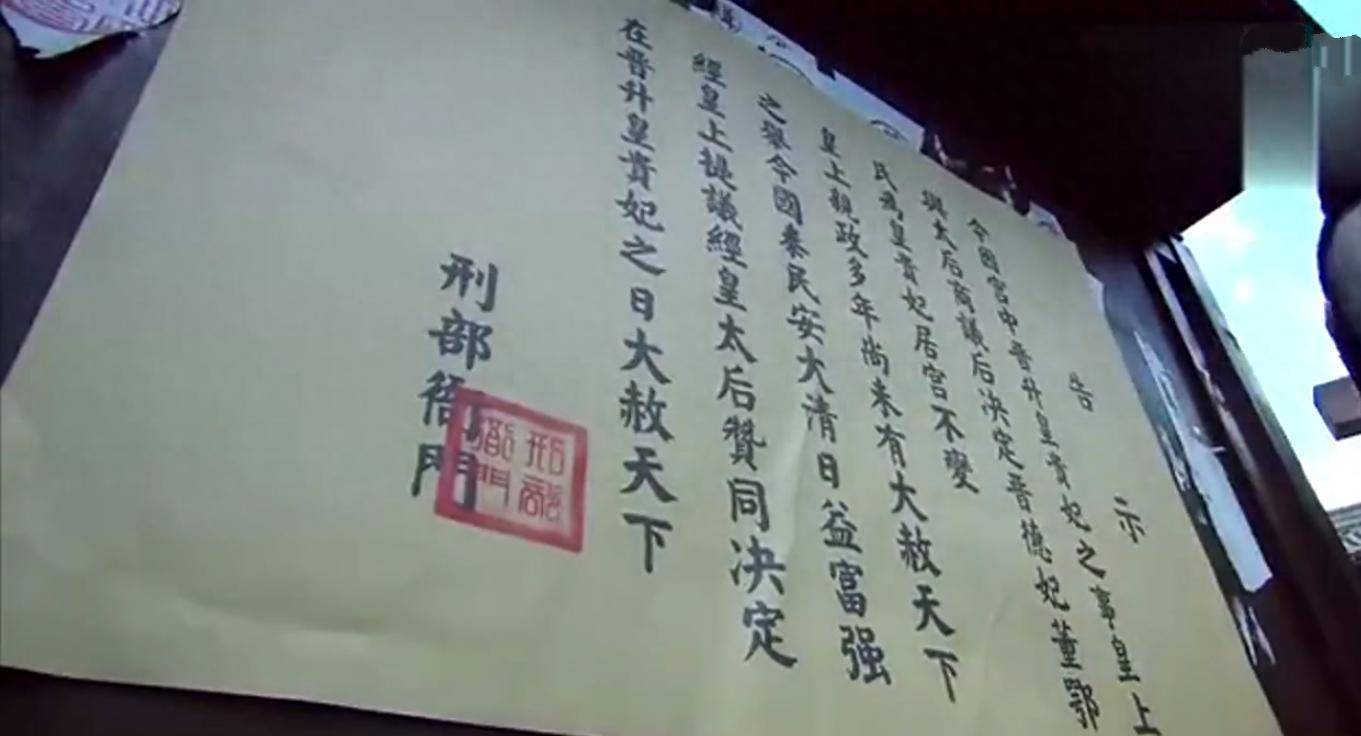 告示
今因宮中晋升皇貴妃之事皇上
與太后商議后决定晋德妃董鄂
氏為皇貴妃居宫不變
皇上親政多年尚未有大赦天下
之舉令國泰民安大清日益富强
經皇上提議經皇太后贊同决定
在晋升皇貴妃之日大赦天下
刑部衙門
刑部
衙門